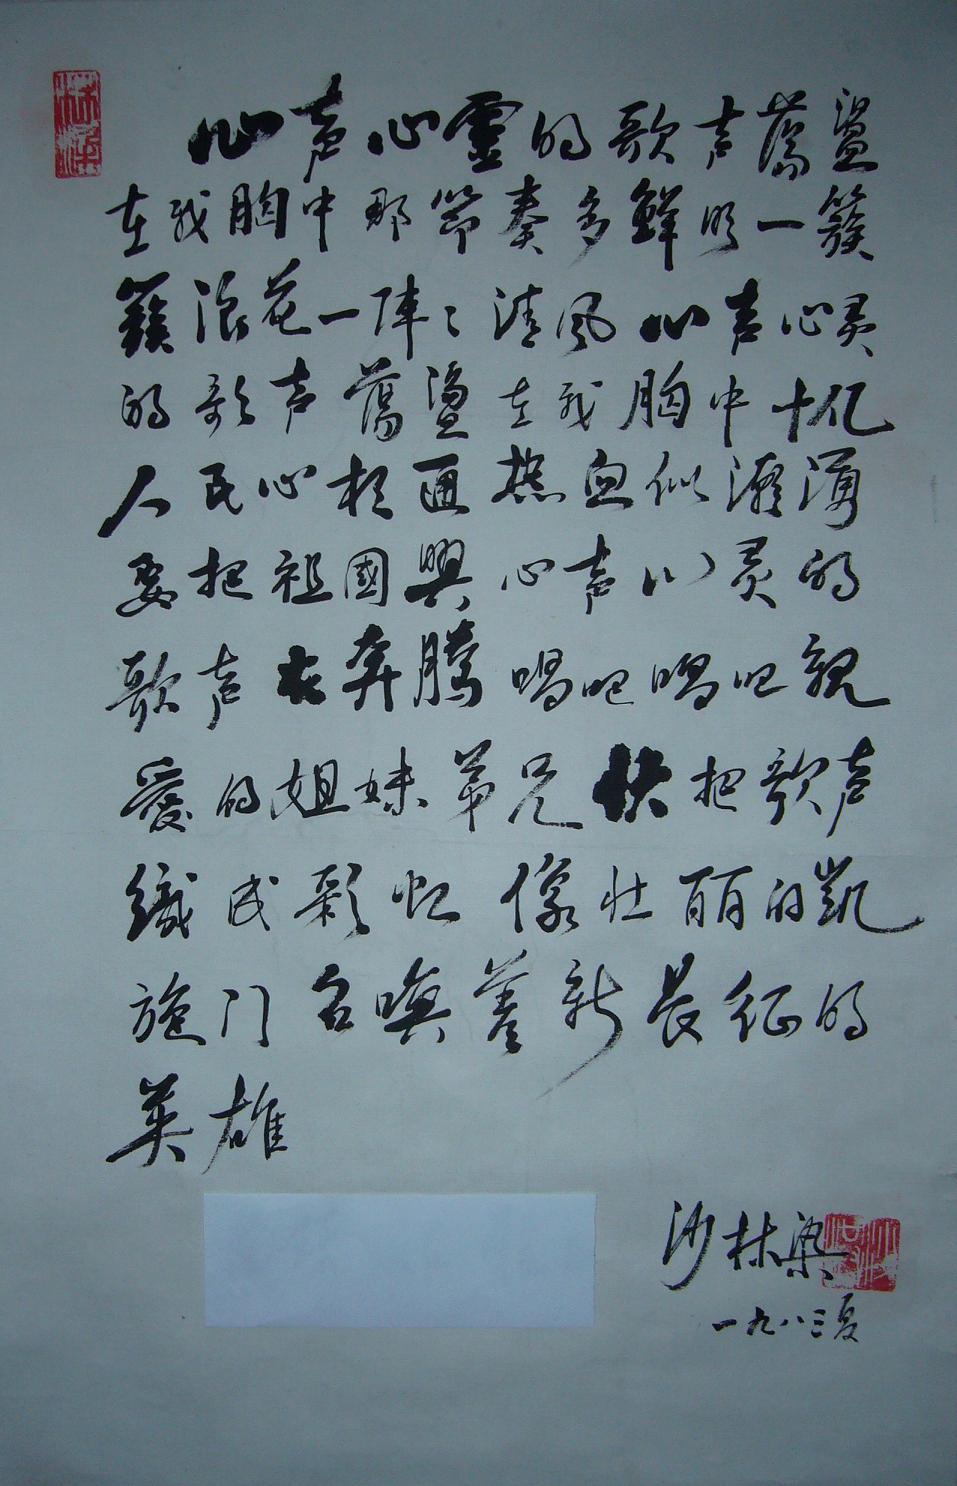 心声心靈的歌声蕩盪
在我胸中那节奏多鮮明一簇
簇浪花一阵〻清风心声心灵
的歌声蕩盪在我胸中十亿
人民心相通热血似潮涌
要把祖國興心声心灵的
歌声在奔騰唱吧唱吧親
愛的姐妹弟兄快把歌声
織成彩虹像壮丽的凯
旋门召唤着新長征的
英雄
沙林染
一九八三夏